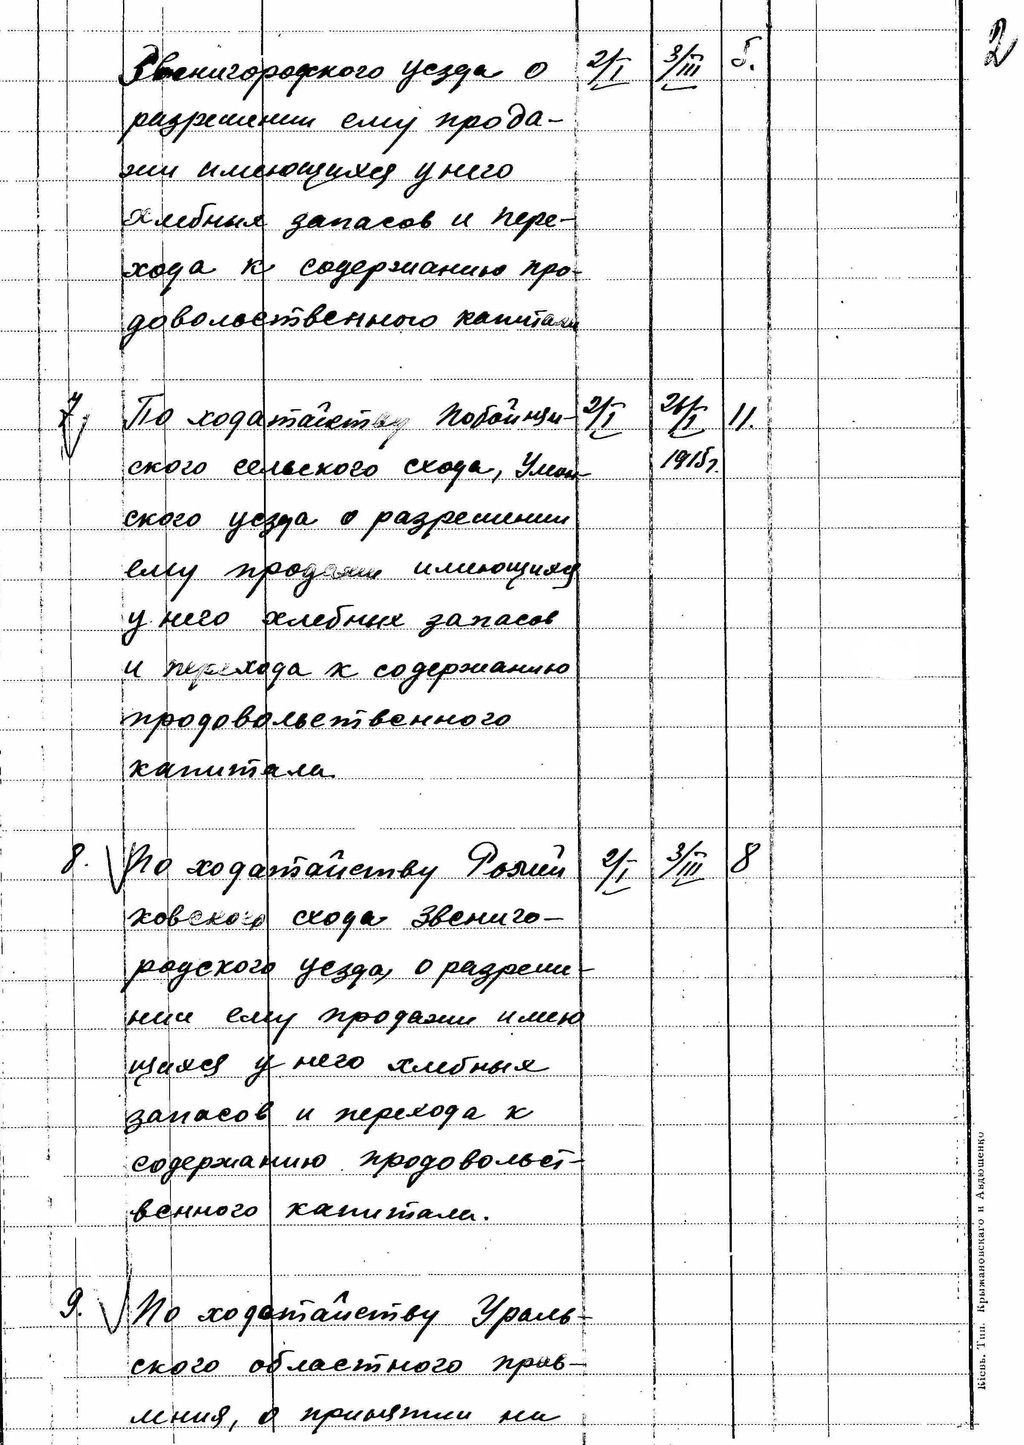 2
Звенигородского уезда о 2/I 3/III 5.
разрешении ему прода-
жи имеющихся у него
хлебных запасов и пере-
хода к содержанию про-
довольственного капитала
7. По ходатайству Побойнян- 2/I 26/I 11.
ского сельского схода, Уман- 1915г.
ского уезда о разрешении
ему продажи имеющихся
у него хлебных запасов
и перехода к содержанию
продовольственного
капитала
8. По ходатайству 2/I 3/III 8
ковского схода Звениго-
родского уезда, о разреше-
нии ему продажи имею
щихся у него хлебных
запасов и перехода к
содержанию продовольст-
венного капитала.
9. По ходатайству Ураль-
ского областного прав-
ления, о принятии на
Кіевъ. Тип. Крыжановскаго и Авдюшенко